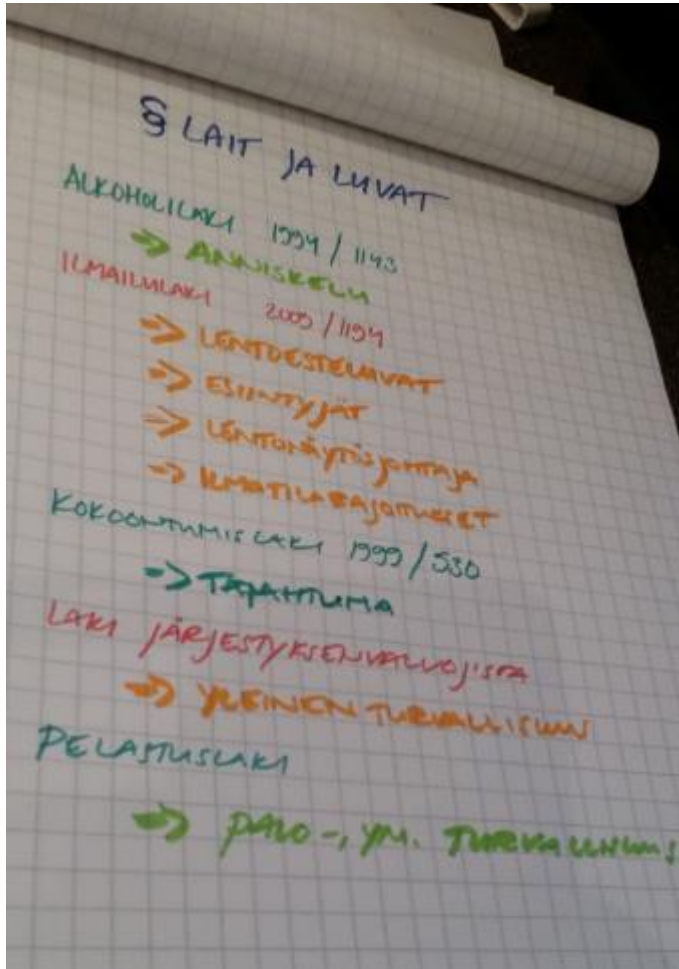 § LAIT JA LUVAT
ALKOHOLILAKI 1994/1143
=> ANNISKELU
ILMAILULAKI 2009/1194
=> LENTOESTELUVAT
=> ESIINTYJÄT
=> LENTONÄYTÖSJOHTAJA
=> ILMATILARAJOITUKSET
KOKOONTUMISLAKI 1999/530
=> TAPAHTUMA
LAKI JÄRJESTYKSENVALVOJISTA
=> YLEINEN TURVALLISUUS
PELASTUSLAKI
=> PALO-, YM. TURVALLISUUS